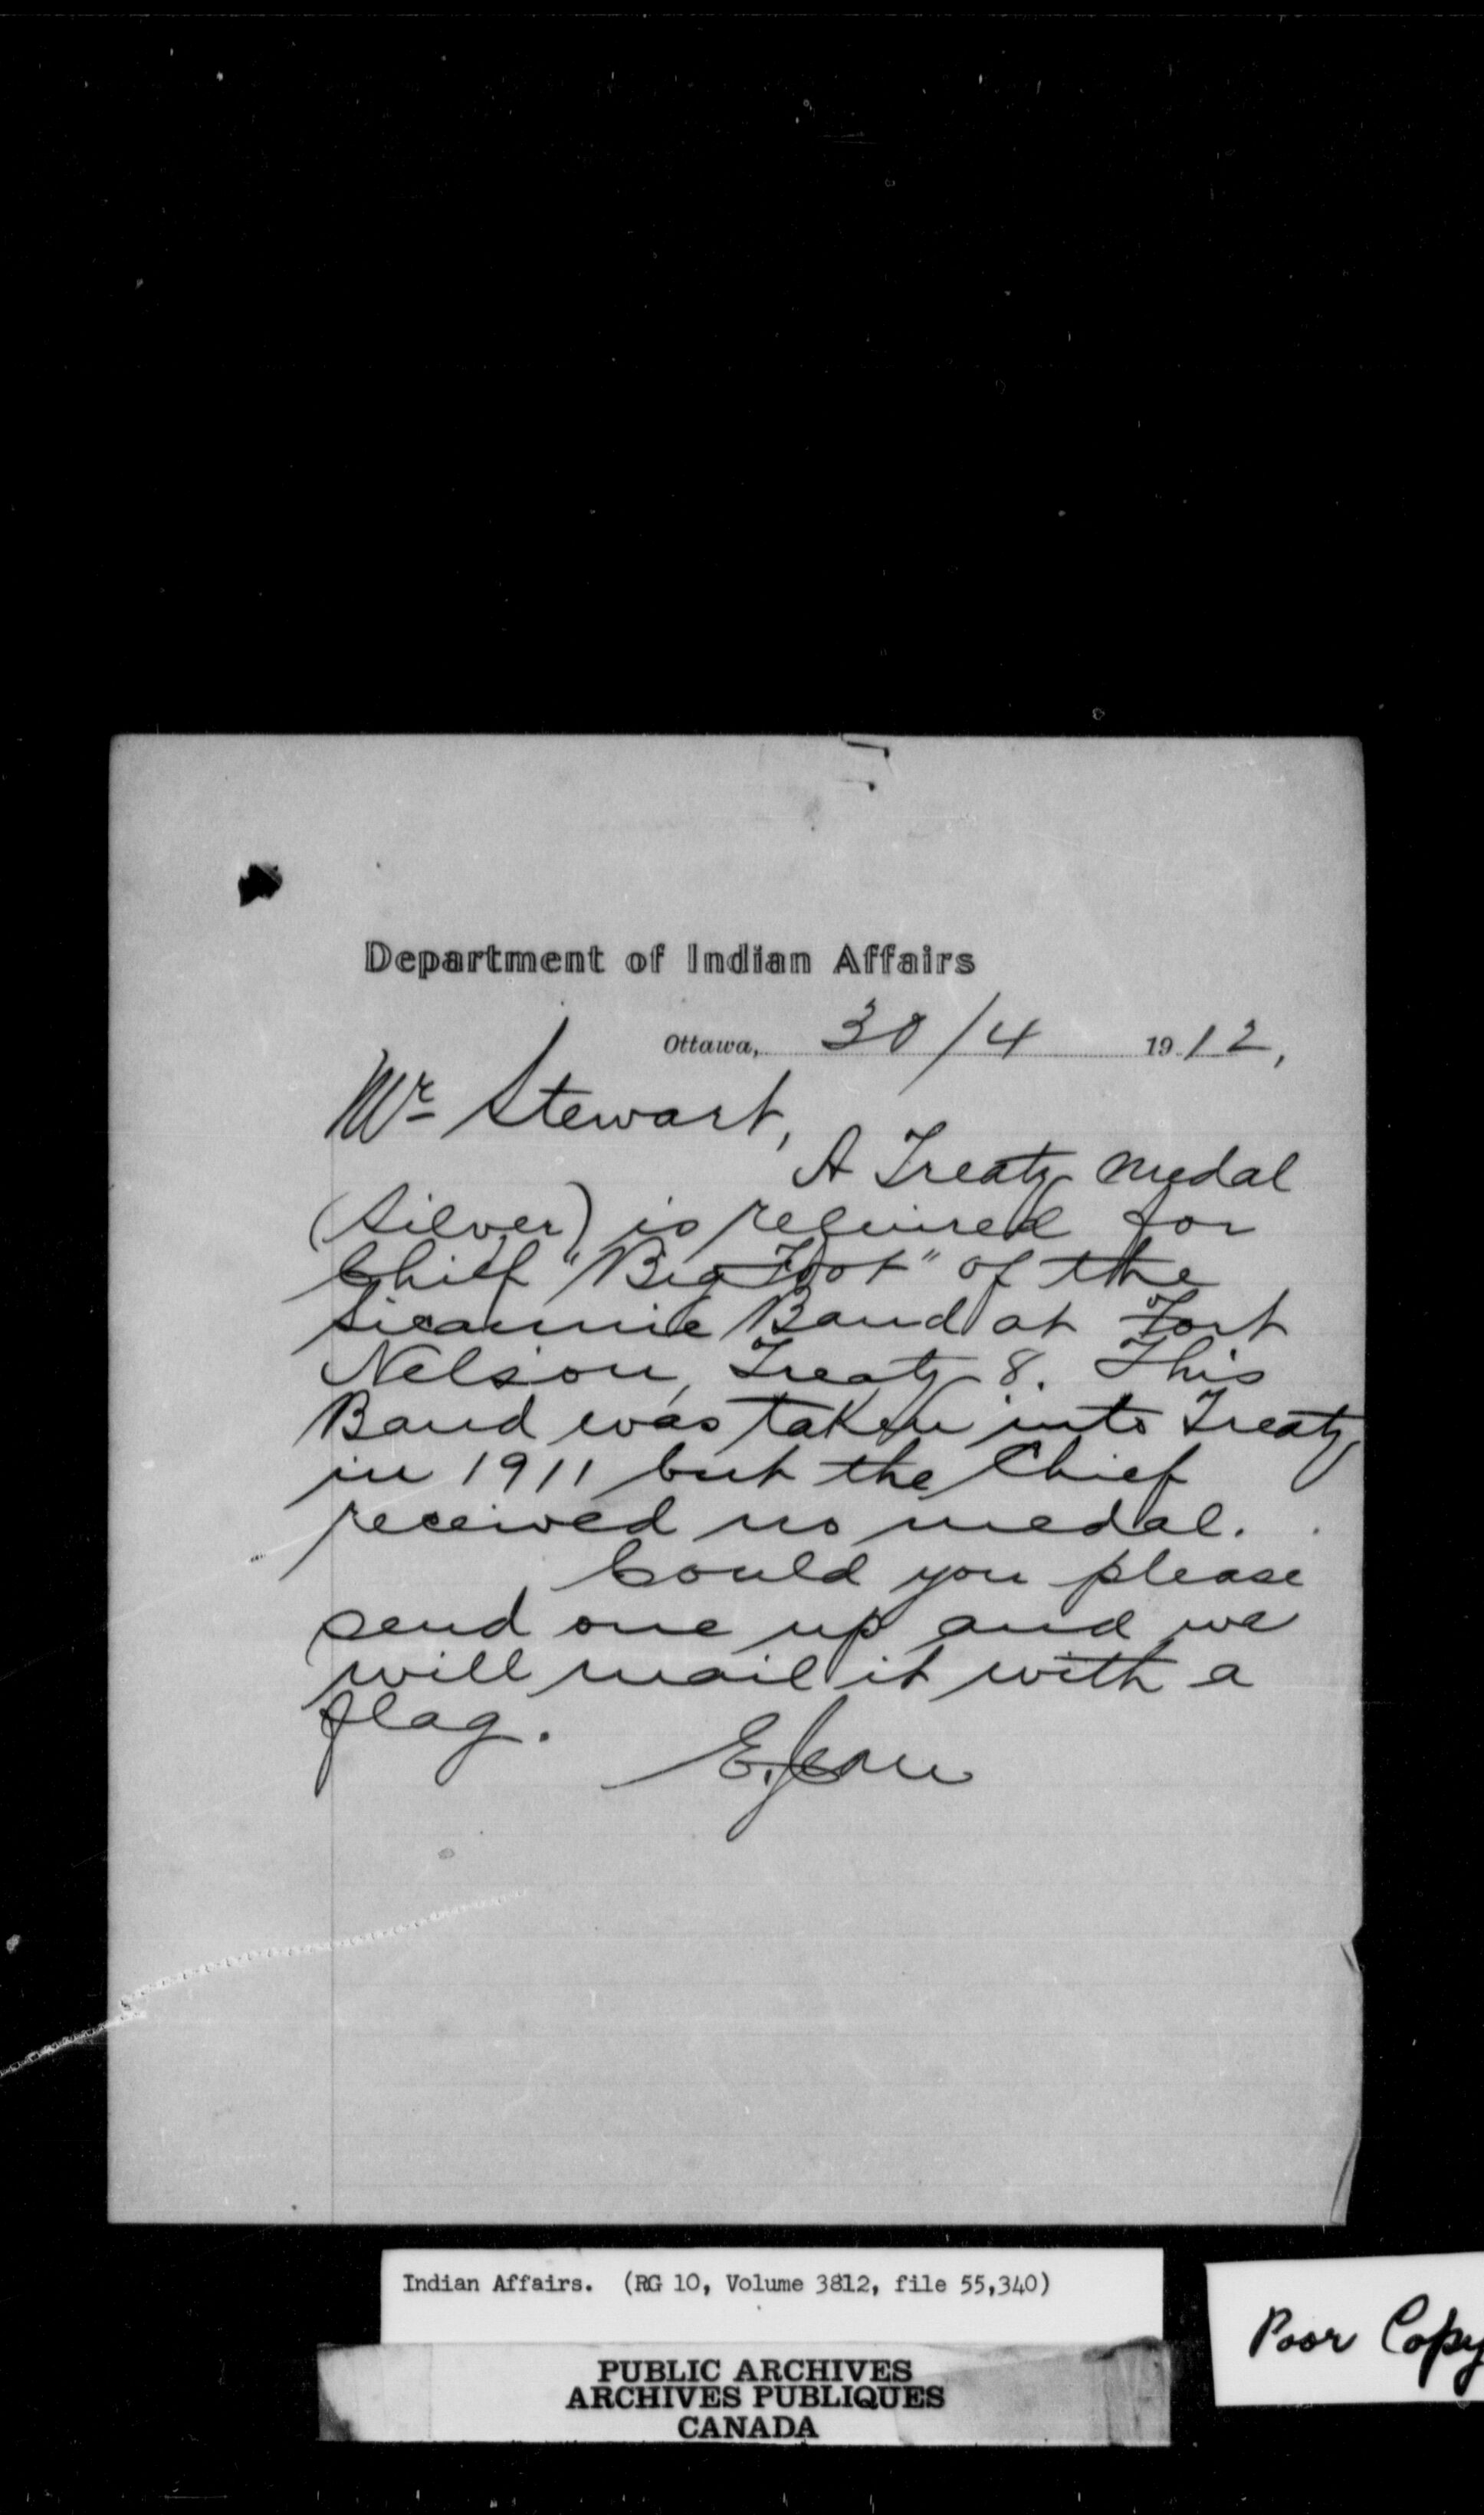 Department of Indian Affairs
Ottawa, 30/4 1912,
Mr Stewart,
A Treaty medal
(silver) is required for
Chief "Big Foot" of the
Sicannie Band at Fort
Nelson, Treaty 8. This
Band was taken into Treaty
in 1911 but the Chief
received no medal.
Could you please
send one up and we
will mail it with a
flag.
E. Jean
Indian Affairs. (RG 10, Volume 3812, file 55,340)
PUBLIC ARCHIVES
ARCHIVES PUBLIQUES
CANADA
Poor Copy